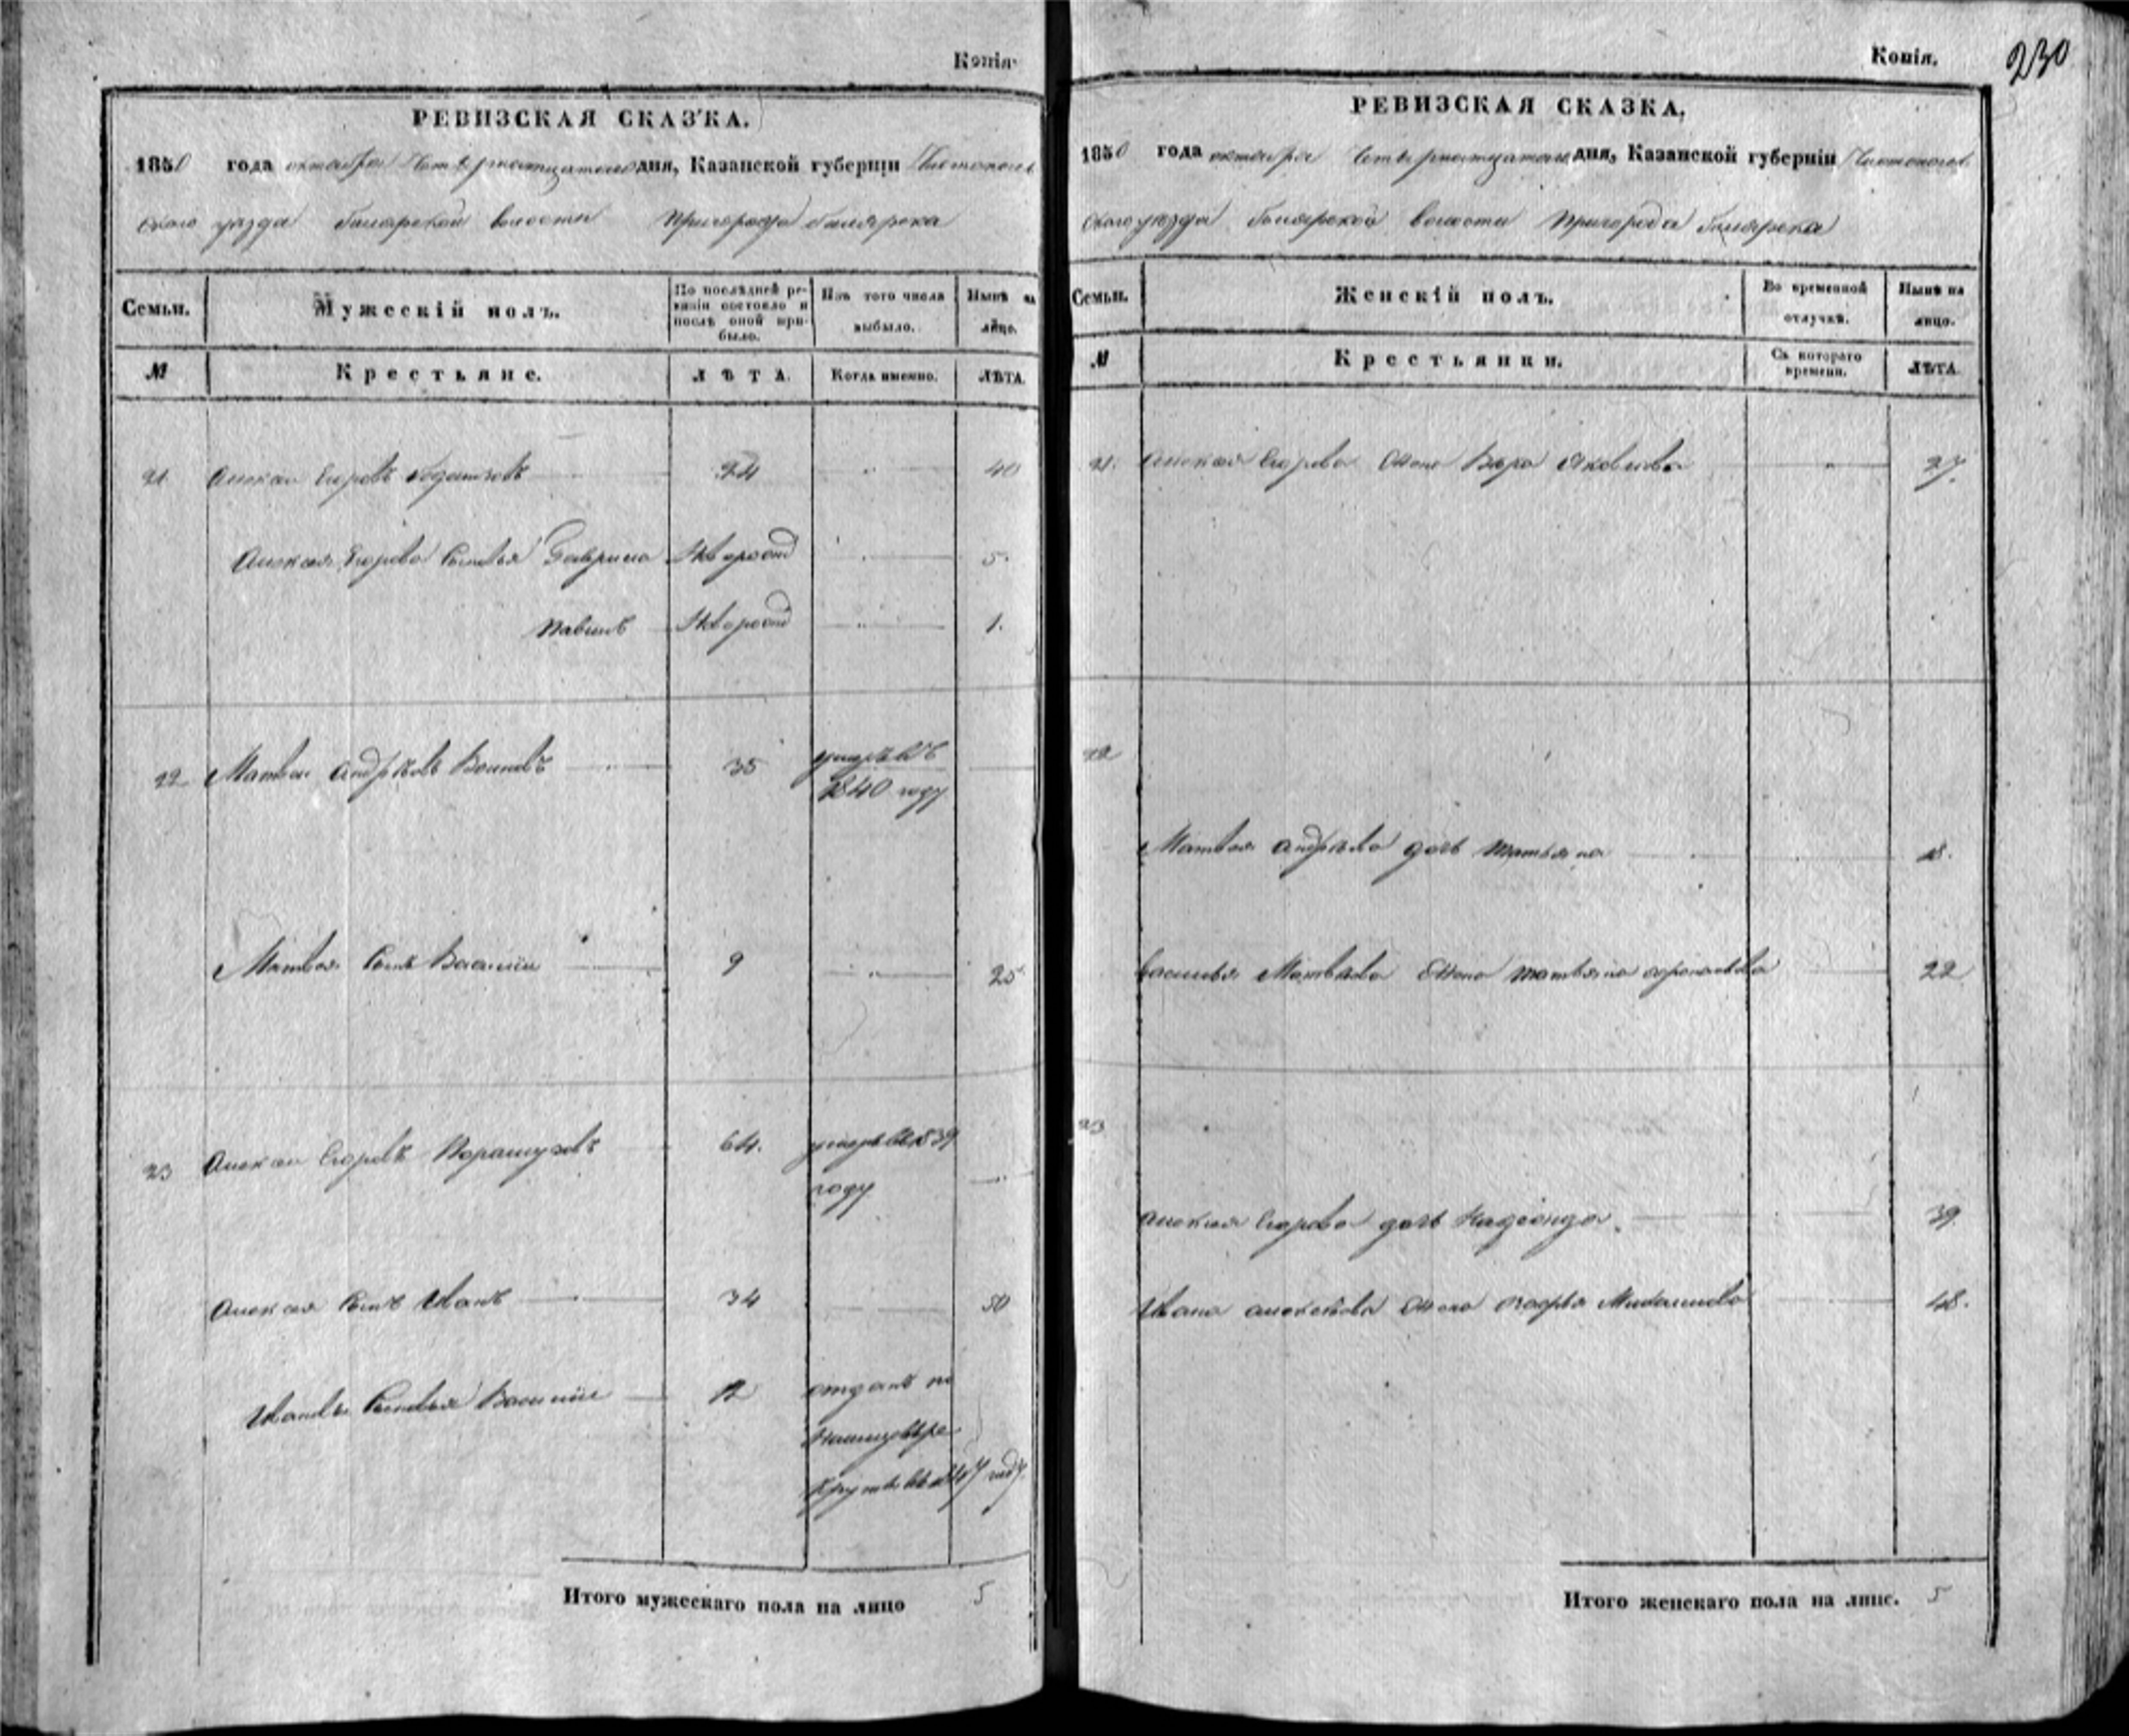 Копія.
РЕВИЗСКАЯ СКАЗКА.
1850 года октября Четырнатцатого дня, Казанской губерніи Чистополь
ского уезда Билярской волости Пригорода Билярска
Семьи.
Мужескій полъ.
По послѣдней ре-
визіи состояло и
послѣ оной при-
было.
Изъ того числа
выбыло.
Нынѣ на
лицо.
№
Крестьяне.
ЛѢТА.
Когда именно.
ЛѢТА.
21 Алексеи Егоровъ 24 40
Алексея Егорова Сыновья Гаврила Нворожд 5.
Павилъ Нворожд 1.
22 Матвеи Андрѣевъ Воиновъ 35 умеръ въ
1840 году
Матвея Сынъ Василии 9 25
23 Алексеи Егоровъ 64. умеръ въ 1839
году
Алексея Сынъ Иванъ 34 50
Ивановы Сыновья Василии 12 отданъ по
рекруты въ 1847 году
Итого мужескаго пола на лицо 5
Копія.
230
РЕВИЗСКАЯ СКАЗКА.
1850 года октября Четырнатцатого дня, Казанской губерніи Чистополь
ского уезда Билярской волости Пригорода Билярска
Семьи.
Женскій полъ.
Во временной
отлучкѣ.
Нынѣ на
лицо.
№
Крестьянки.
Съ котораго
времени.
ЛѢТА.
21. Алексея Егорова Жена Вера Яковлева 27.
22
Матвея Андрѣева дочь Татьяна 18.
Василья Матвѣева Жена Татьяна 22
23
Алексея Егорова дочь Надежда 39
Ивана Алексѣева Жена Михайлова 48.
Итого женскаго пола на лицо. 5